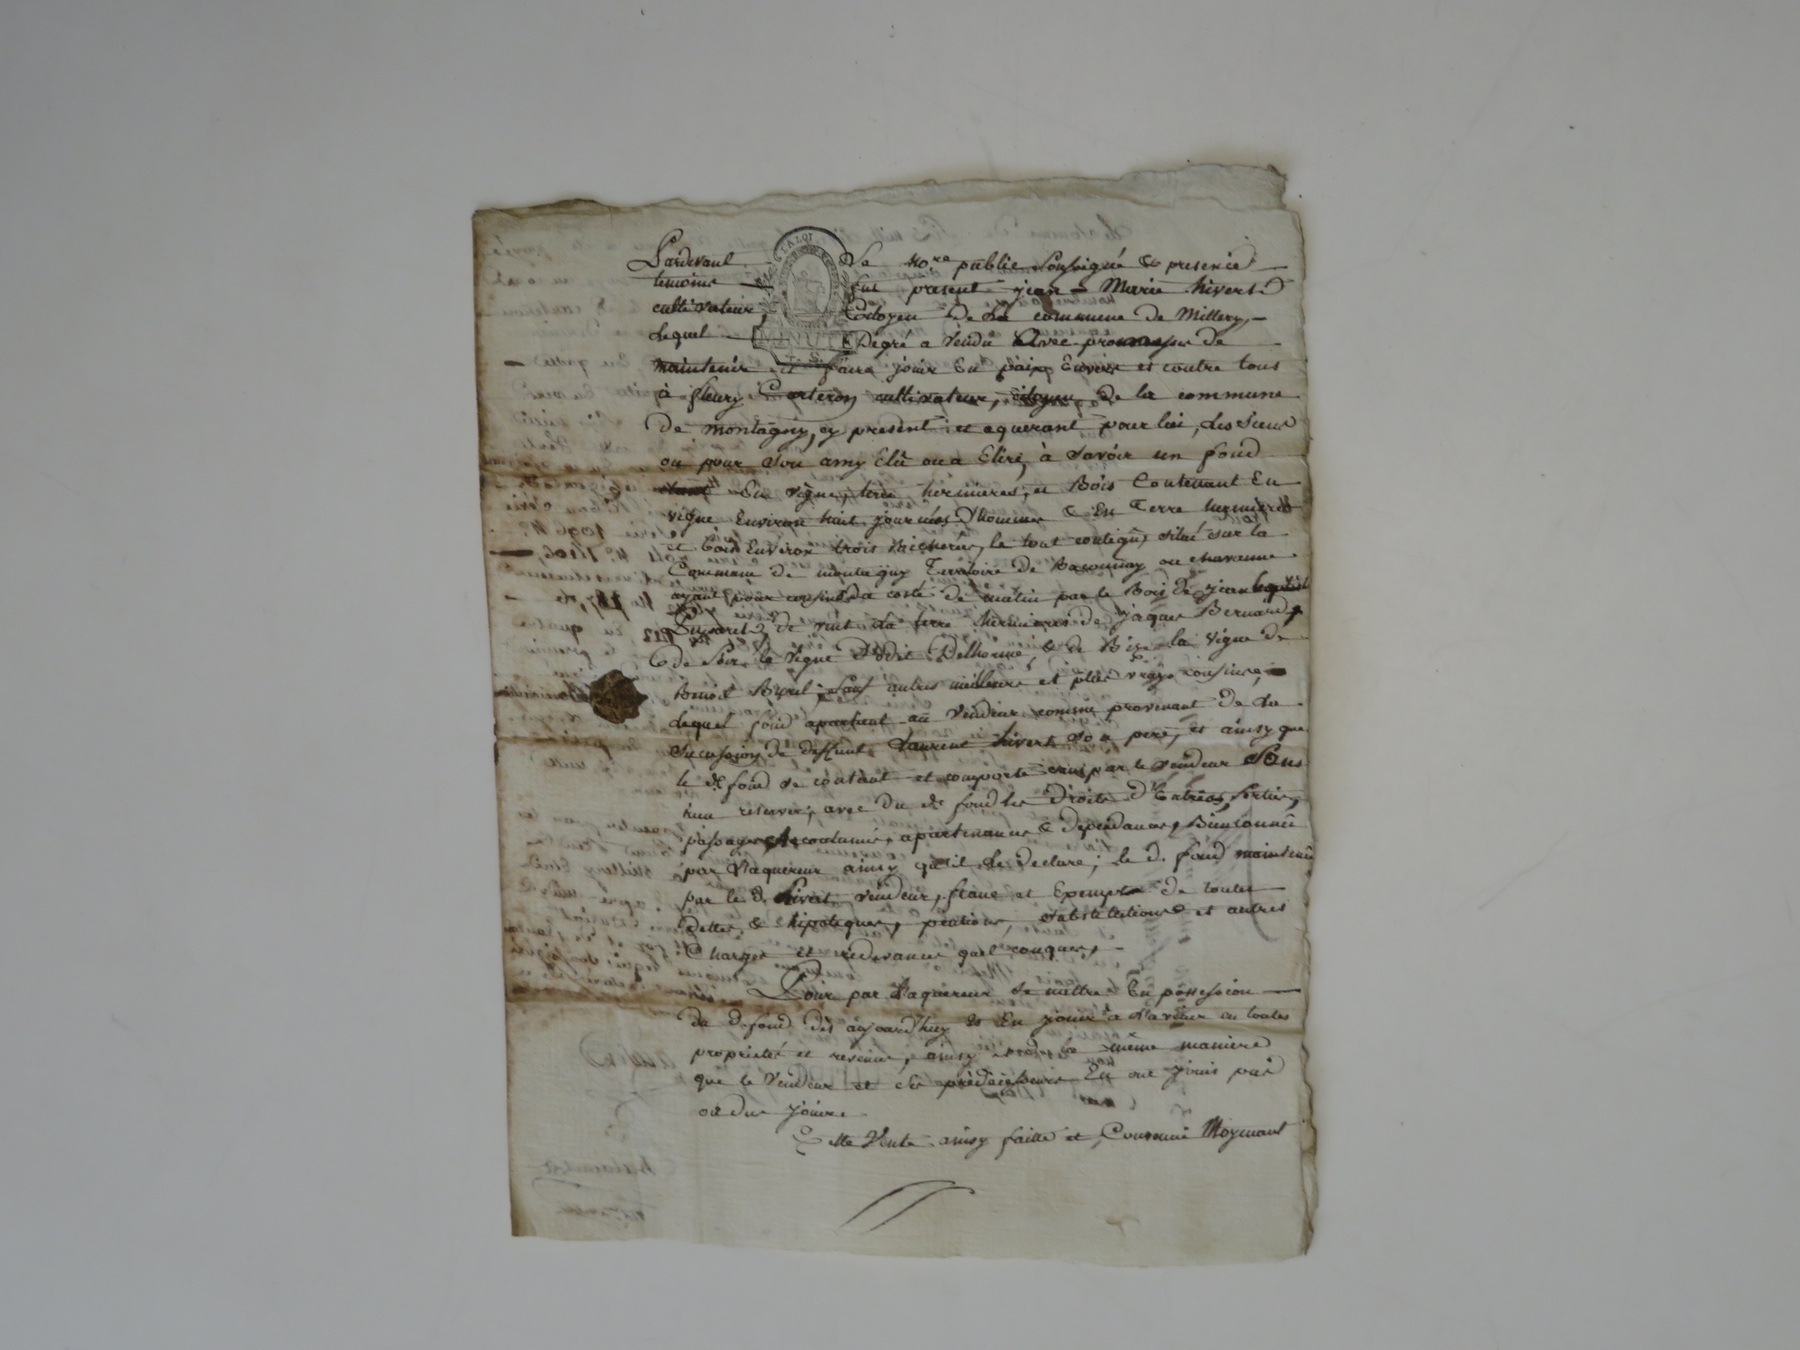 Pardevant Le Nore public Soussigné & presence
temoins fut present jean Marie hivert
cultivateur, Citoyen de La commune de Millery,
Lequel Degré a Vendu Avec promesse de
LA LOI
MINUTE
maintenir et faire jouir En paix Envers et contre tous
à fleury Carteron cultivateur, citoyen de la commune
de montagny, cy present et aquerant pour lui, les Siens
ou pour Son amy Elû ou a Elire, à Savoir un fond
En vigne, terre hermieres, et Bois Contenant En
vigne Environ huit journées d'hommes & En Terre hermieres
et bois Environ trois bicherés, le tout contigu, situé sur la
Commune de montagny Territoire de ou chavanne
ayant pour confins da costé de matin par le Bois de jean baptiste
de vent La terre hermieres de jaques Bernard,
& de Soir la vigne d'Odit Delhorme, & de Bize la vigne de
Benoit Sauf autres meilleurs et plus vrays confins,
Lequel fond apartient au Vendeur comme provenant de La
Sucession de deffunt Laurent hivert Son pere, et ainsy que
le d. fond se contient et comporte par le Vendeur Sans
rien reserver, avec du d. fond les Droits d'Entrées, Sorties,
passages Accoutumé, apartenances & dependances, Bien connu
par L'aquereur ainsy qu'il Le Declare; le d. fond maintenu
par le d. hivert vendeur, franc et Exempt de toutes
dettes & hipoteques, pentions, substitutions et autres
Charges et redevances quelconques,
Pour par L'aquereur Se mettre En possession
du d. fond dès aujourd'huy & En jouir à L'avenir en toutes
proprietés et revenus, ainsy de la même maniere
que le Vendeur et Ses prédécesseurs En ont jouis pus
ou du jouir.
Cette Vente ainsy faitte et Convenue Moyenant